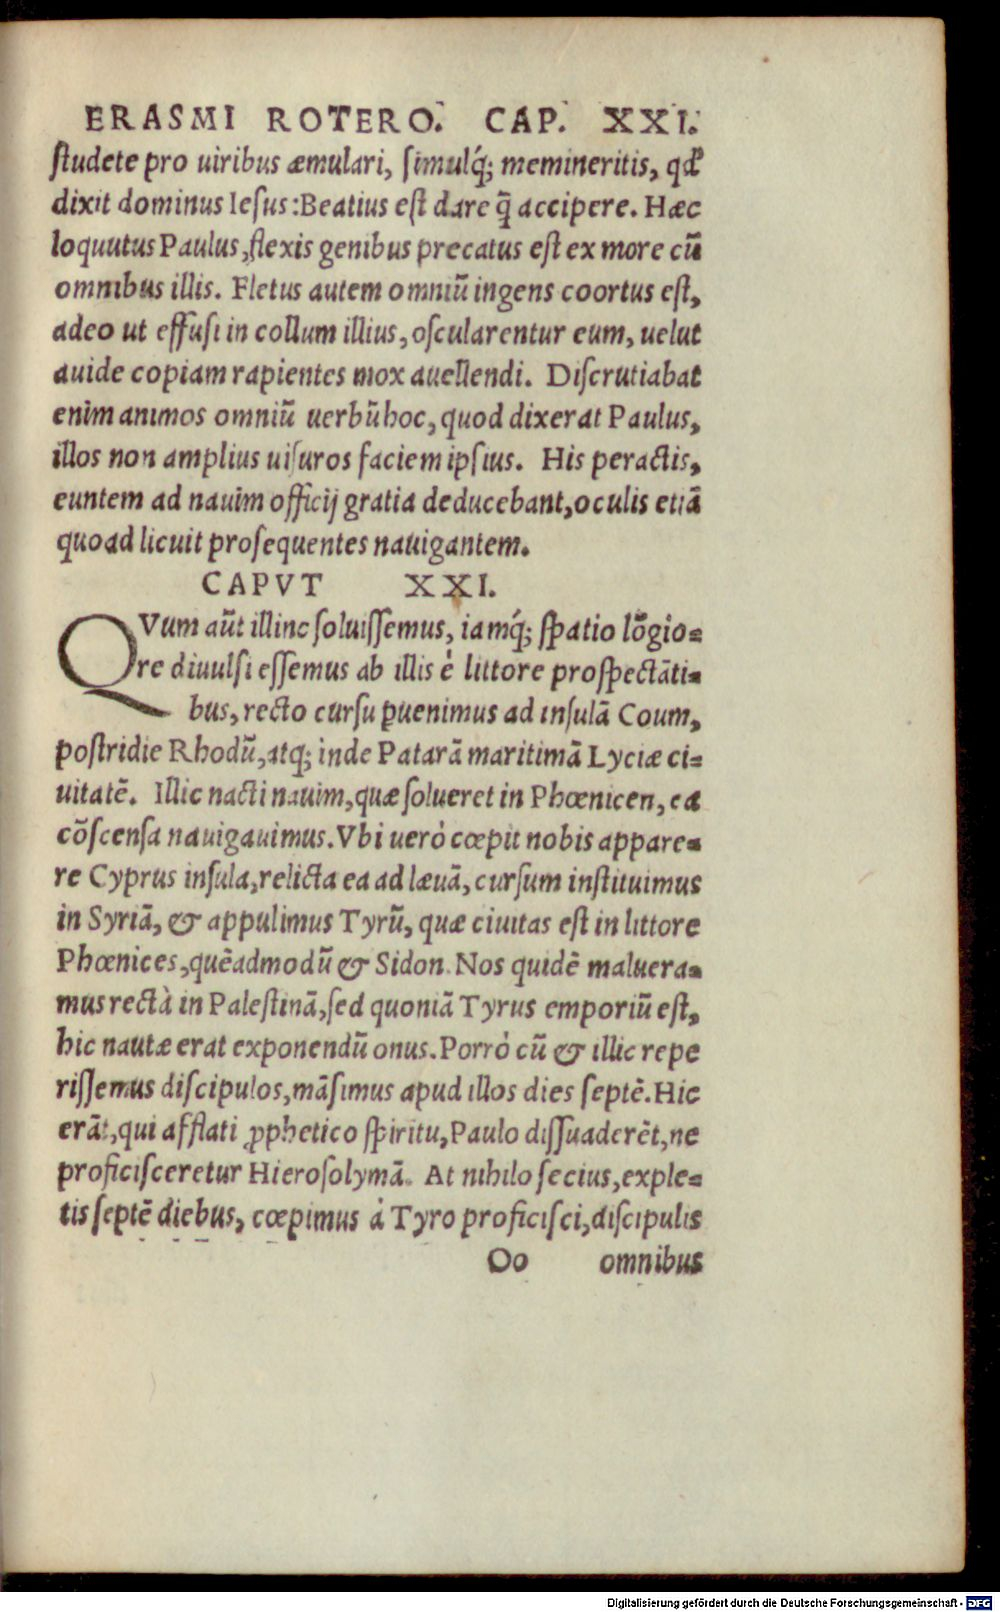 ERASMI ROTERO. CAP. XXI.
ſtudete pro uiribus æmulari, ſimulq́; memineritis, qđ
dixit dominus Ieſus: Beatius eſt dare q̃ accipere. Hæc
loquutus Paulus, flexis genibus precatus eſt ex more cũ
omnibus illis. Fletus autem omniũ ingens coortus eſt,
adeo ut effuſi in collum illius, oſcularentur eum, uelut
auide copiam rapientes mox auellendi. Diſcrutiabat
enim animos omniũ uerbũ hoc, quod dixerat Paulus,
illos non amplius uiſuros faciem ipſius. His peractis,
euntem ad nauim officij gratia deducebant, oculis etiã
quoad licuit proſequentes nauigantem.
CAPVT XXI.
QVum aũt illinc ſoluiſſemus, iamq́; ſpatio lõgio=
re diuulſi eſſemus ab illis è littore proſpectãti=
bus, recto curſu ꝑuenimus ad inſulã Coum,
poſtridie Rhodũ, atq; inde Patarã maritimã Lyciæ ci=
uitatẽ. Illic nacti nauim, quæ ſolueret in Phœnicen, ea
cõſcenſa nauigauimus. Vbi uerò cœpit nobis appare=
re Cyprus inſula, relicta ea ad læuã, curſum inſtituimus
in Syriã, & appulimus Tyrũ, quæ ciuitas eſt in littore
Phœnices, quẽadmodũ & Sidon. Nos quidẽ maluera=
mus rectà in Paleſtinã, ſed quoniã Tyrus emporiũ eſt,
hic nautæ erat exponendũ onus. Porrò cũ & illic repe
riſſemus diſcipulos, mãſimus apud illos dies ſeptẽ. Hic
erãt, qui afflati ꝓphetico ſpiritu, Paulo diſſuaderẽt, ne
proficiſceretur Hieroſolymã. At nihilo ſecius, exple=
tis ſeptẽ diebus, cœpimus à Tyro proficiſci, diſcipulis
Oo omnibus
Digitalisierung gefördert durch die Deutsche Forschungsgemeinschaft - DFG